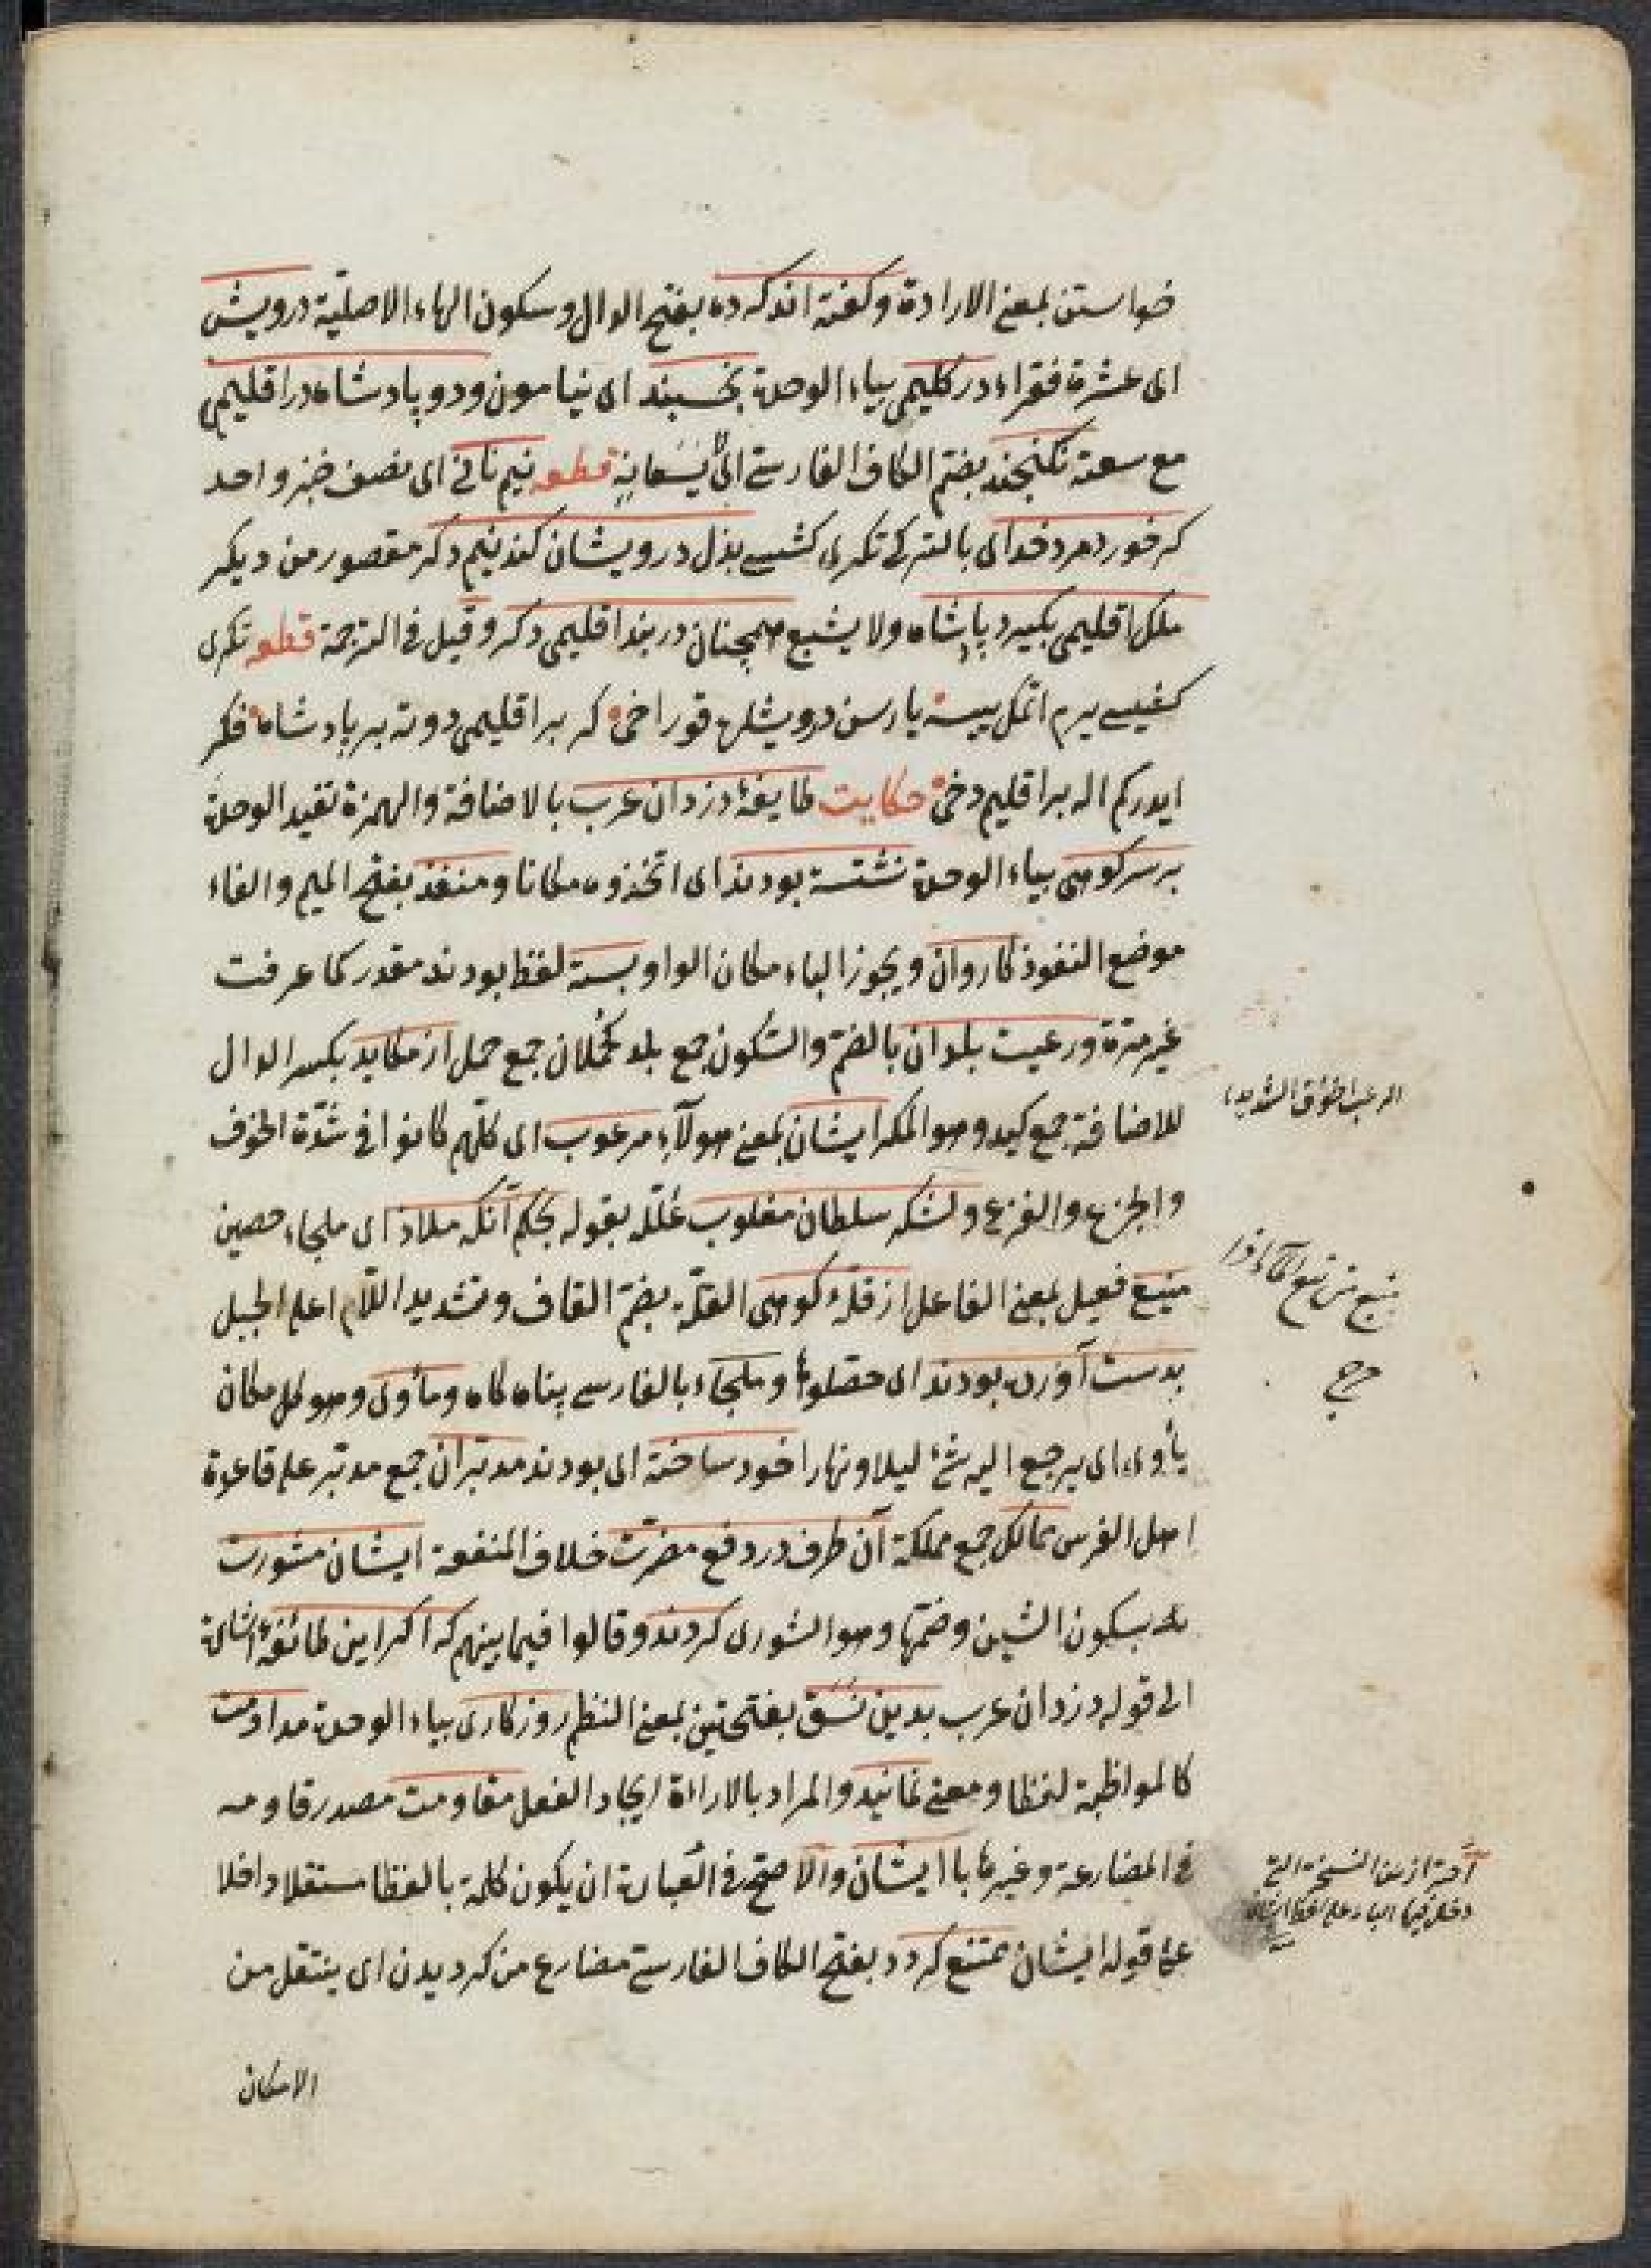 خواستن بمعنى الارادة وكفته اندكه ده بفتح الدال وسكون الهاء الاصلية درويش
اى عشرة فقراء در كليمى بياء الوحدة بخسبند اى نيامون ودو پادشاه در اقليمى
مع سعته نكنجند بضم الكاف الفارسى اى لا يسعانه قطعه نيم نانى اى نصف خبز واحد
كر خورد مرد خداى بالتركى تكرى كشيسى بذل درويشان كند نيم دكر مقصور من ديكر
ملك اقليمى بكيرد پادشاه ولا يشبع همچنان در بند اقليمى دكر وقيل فى الترجمة قطعه تكرى
كشيسى يرم اتمك ييسه يارسن درويشلره قور اخى كر بر اقليمى دوته بر پادشاه فكر
ايدركم اله بر اقليم دخى حكايت طايفهٔ دزدان عرب بالاضافة والهمزة تفيد الوحدة
بر سر كوهى بياء الوحدة نشسته بودند اى اتخذوه مكانا ومنفذ بفتح الميم والفاء
موضع النفوذ كاروان ويجوز الباء مكان الواو بسته لفظ بودند مقدر كما عرفت
غير مرة ورعيت بلدان بالضم والسكون جمع بلد كحملان جمع حمل از مكايد بكسر الدال
للاضافة جمع كيد وهو المكر ايشان بمعنى هولآء مرعوب اى كلهم كانوا فى شدة الخوف
والجزع والفزع ولشكر سلطان مغلوب علّله بقوله بحكم آنكه ملاذ اى ملجاء حصين
منيع فعيل بمعنى الفاعل از قلهٔ كوهى القلّة بضم القاف وتشديد اللام اعلى الجبل
بدست آورده بودند اى حصلوها وملجاء بالفارسى پناه كاه ومأوى وهو كل مكان
يأوى اى يرجع اليه شئ ليلا ونهارا خود ساخته اى بودند مدبران جمع مدبر على قاعدة
اهل الفرس ممالك جمع مملكة آن طرف در دفع مضرت خلاف المنفعة ايشان مشورت
بسكون الشين وضمها وهو الشورى كردند وقالوا فيما بينهم كه اكر اين طائفه اشارة
الى قوله دزدان عرب بدين نسق بفتحتين بمعنى النظم روزكارى بياء الوحدة مداومت
كالمواظبة لفظا ومعنى نمانيد والمراد بالاراءة ايجاد الفعل مقاومت مصدر قاومه
فى المضارعة وغيرها با ايشان والاصح فى العبارة ان يكون كلمة با لفظا مستقلا داخلا
على قوله ايشان ممتنع كردد بفتح الكاف الفارسى مضارع من كرديدن اى ينتقل من
الامكان
الرعب الخوف الشديد
احتراز عن النسخة التى
دخل فيها الباء على لفظ ايشان